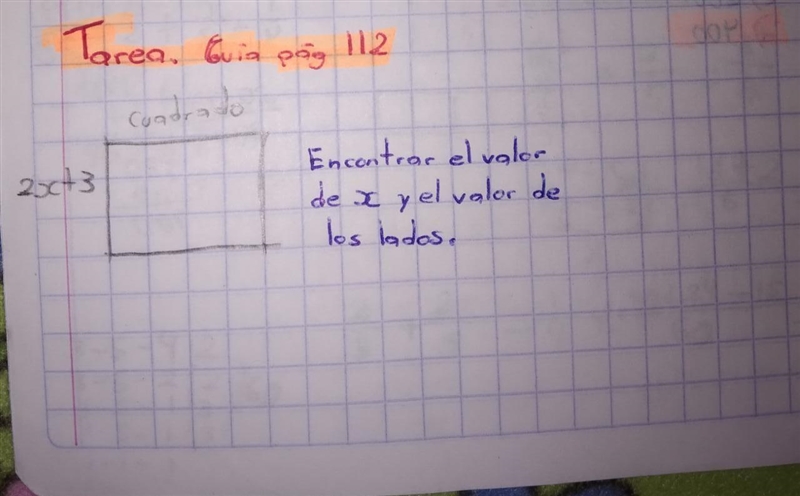 Tarea. Guia pág 112
cuadrado
2x+3
Encontrar el valor
de x y el valor de
los lados.